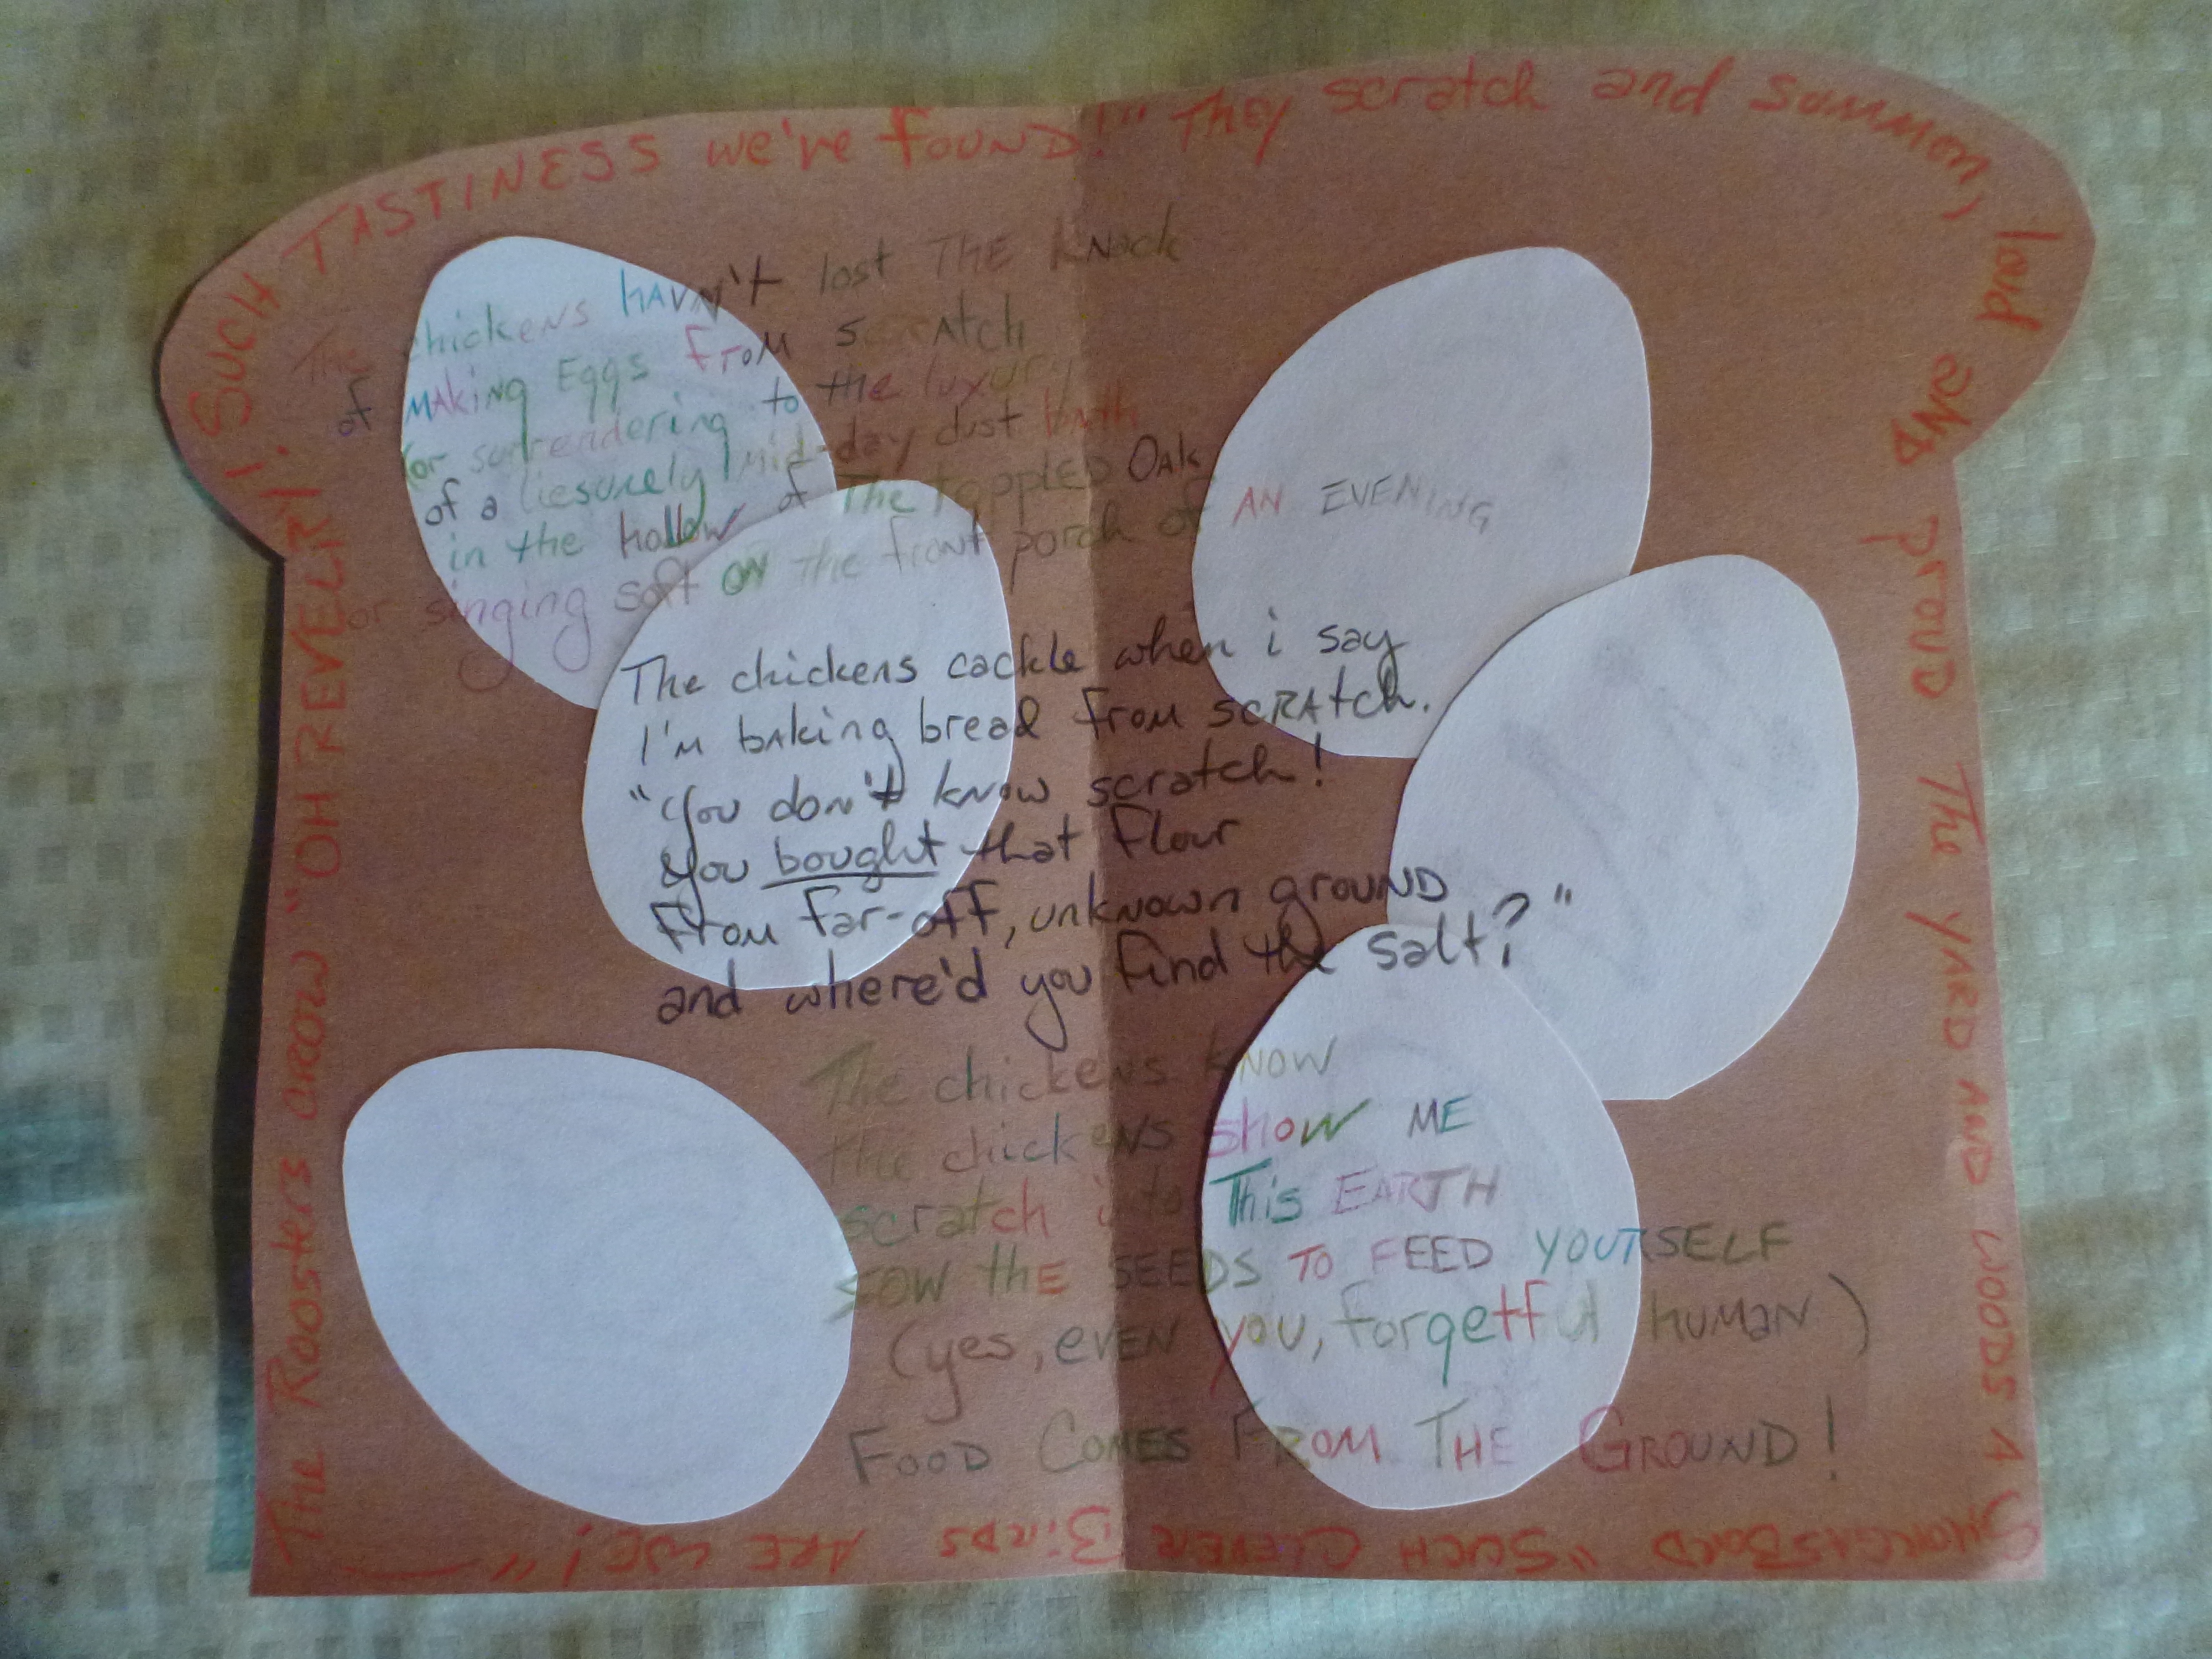 The chickens havn't lost the knack
of making Eggs from scratch
or surrendering to the luxury
of a liesurely mid-day dust bath
in the hollow of The toppled Oak
or singing soft on the front porch of AN EVENING
The chickens cackle when i say
I'm baking bread from scratch.
"You don't know scratch!
You bought that flour
From far-off, unknown ground
and where'd you find the salt?"
The chickens know
the chickens show ME
scratch into This EARTH
SOW the SEEDS TO FEED YOURSELF
(yes, even you, forgetful human)
FOOD COMES FROM THE GROUND!
The Roosters crow "OH REVELRY!
SUCH TASTINESS we're FOUND!" They scratch and summon,
loud AND proud The YARD AND WOODS A
SMORGASBORD "SUCH CLEVER BIRDS ARE WE!"